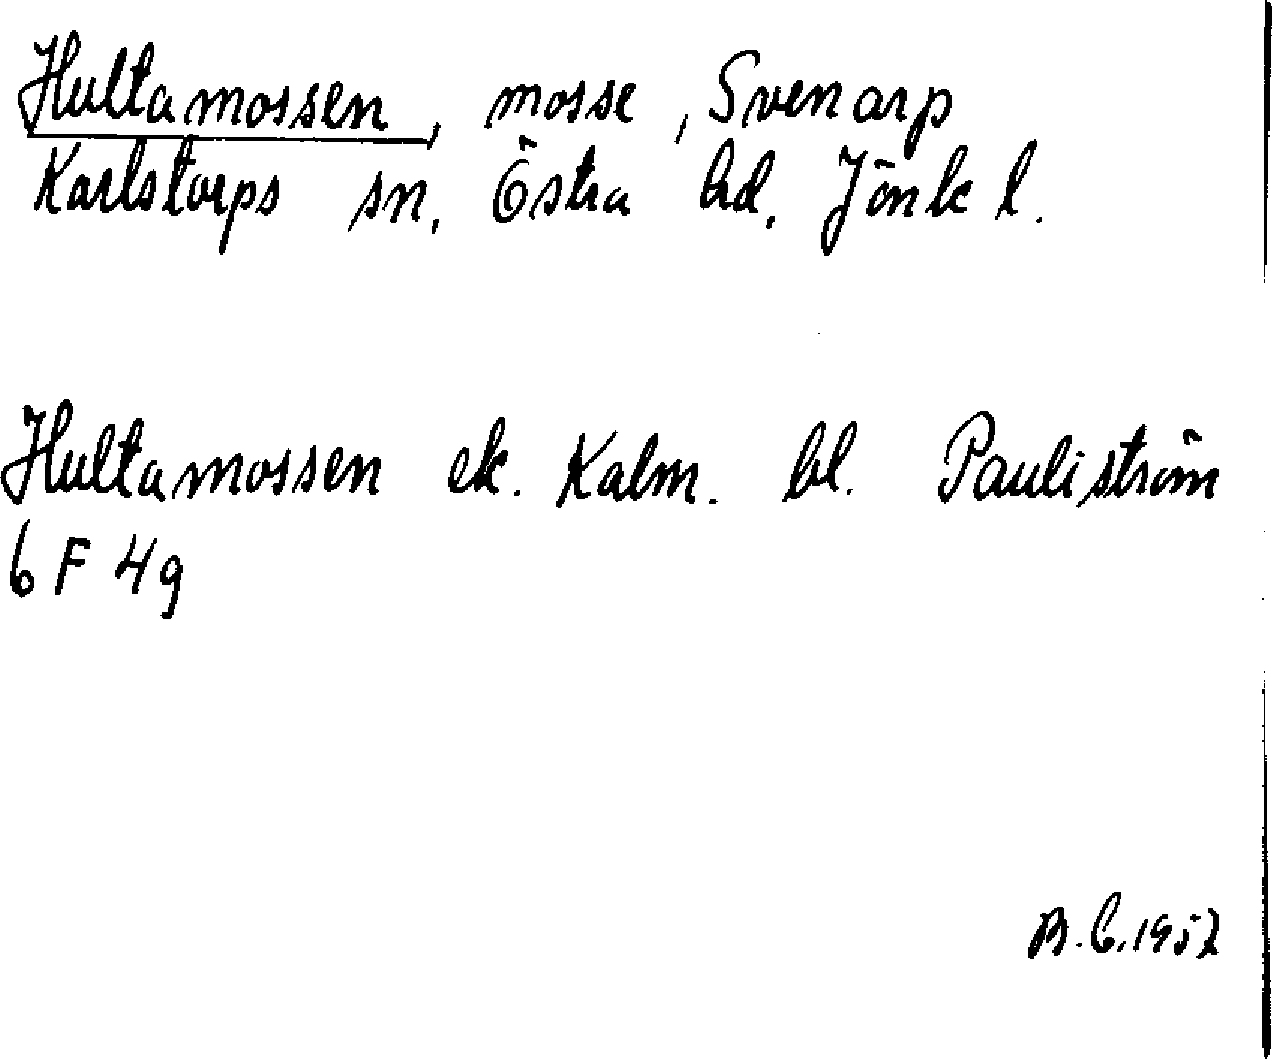 Hultamossen, mosse, Svenarp
Karlstorps sn, Östra hd. Jönk l.
Hultamossen ek. Kalm. bl. Pauliström
6 F 4g
B.C. 1957